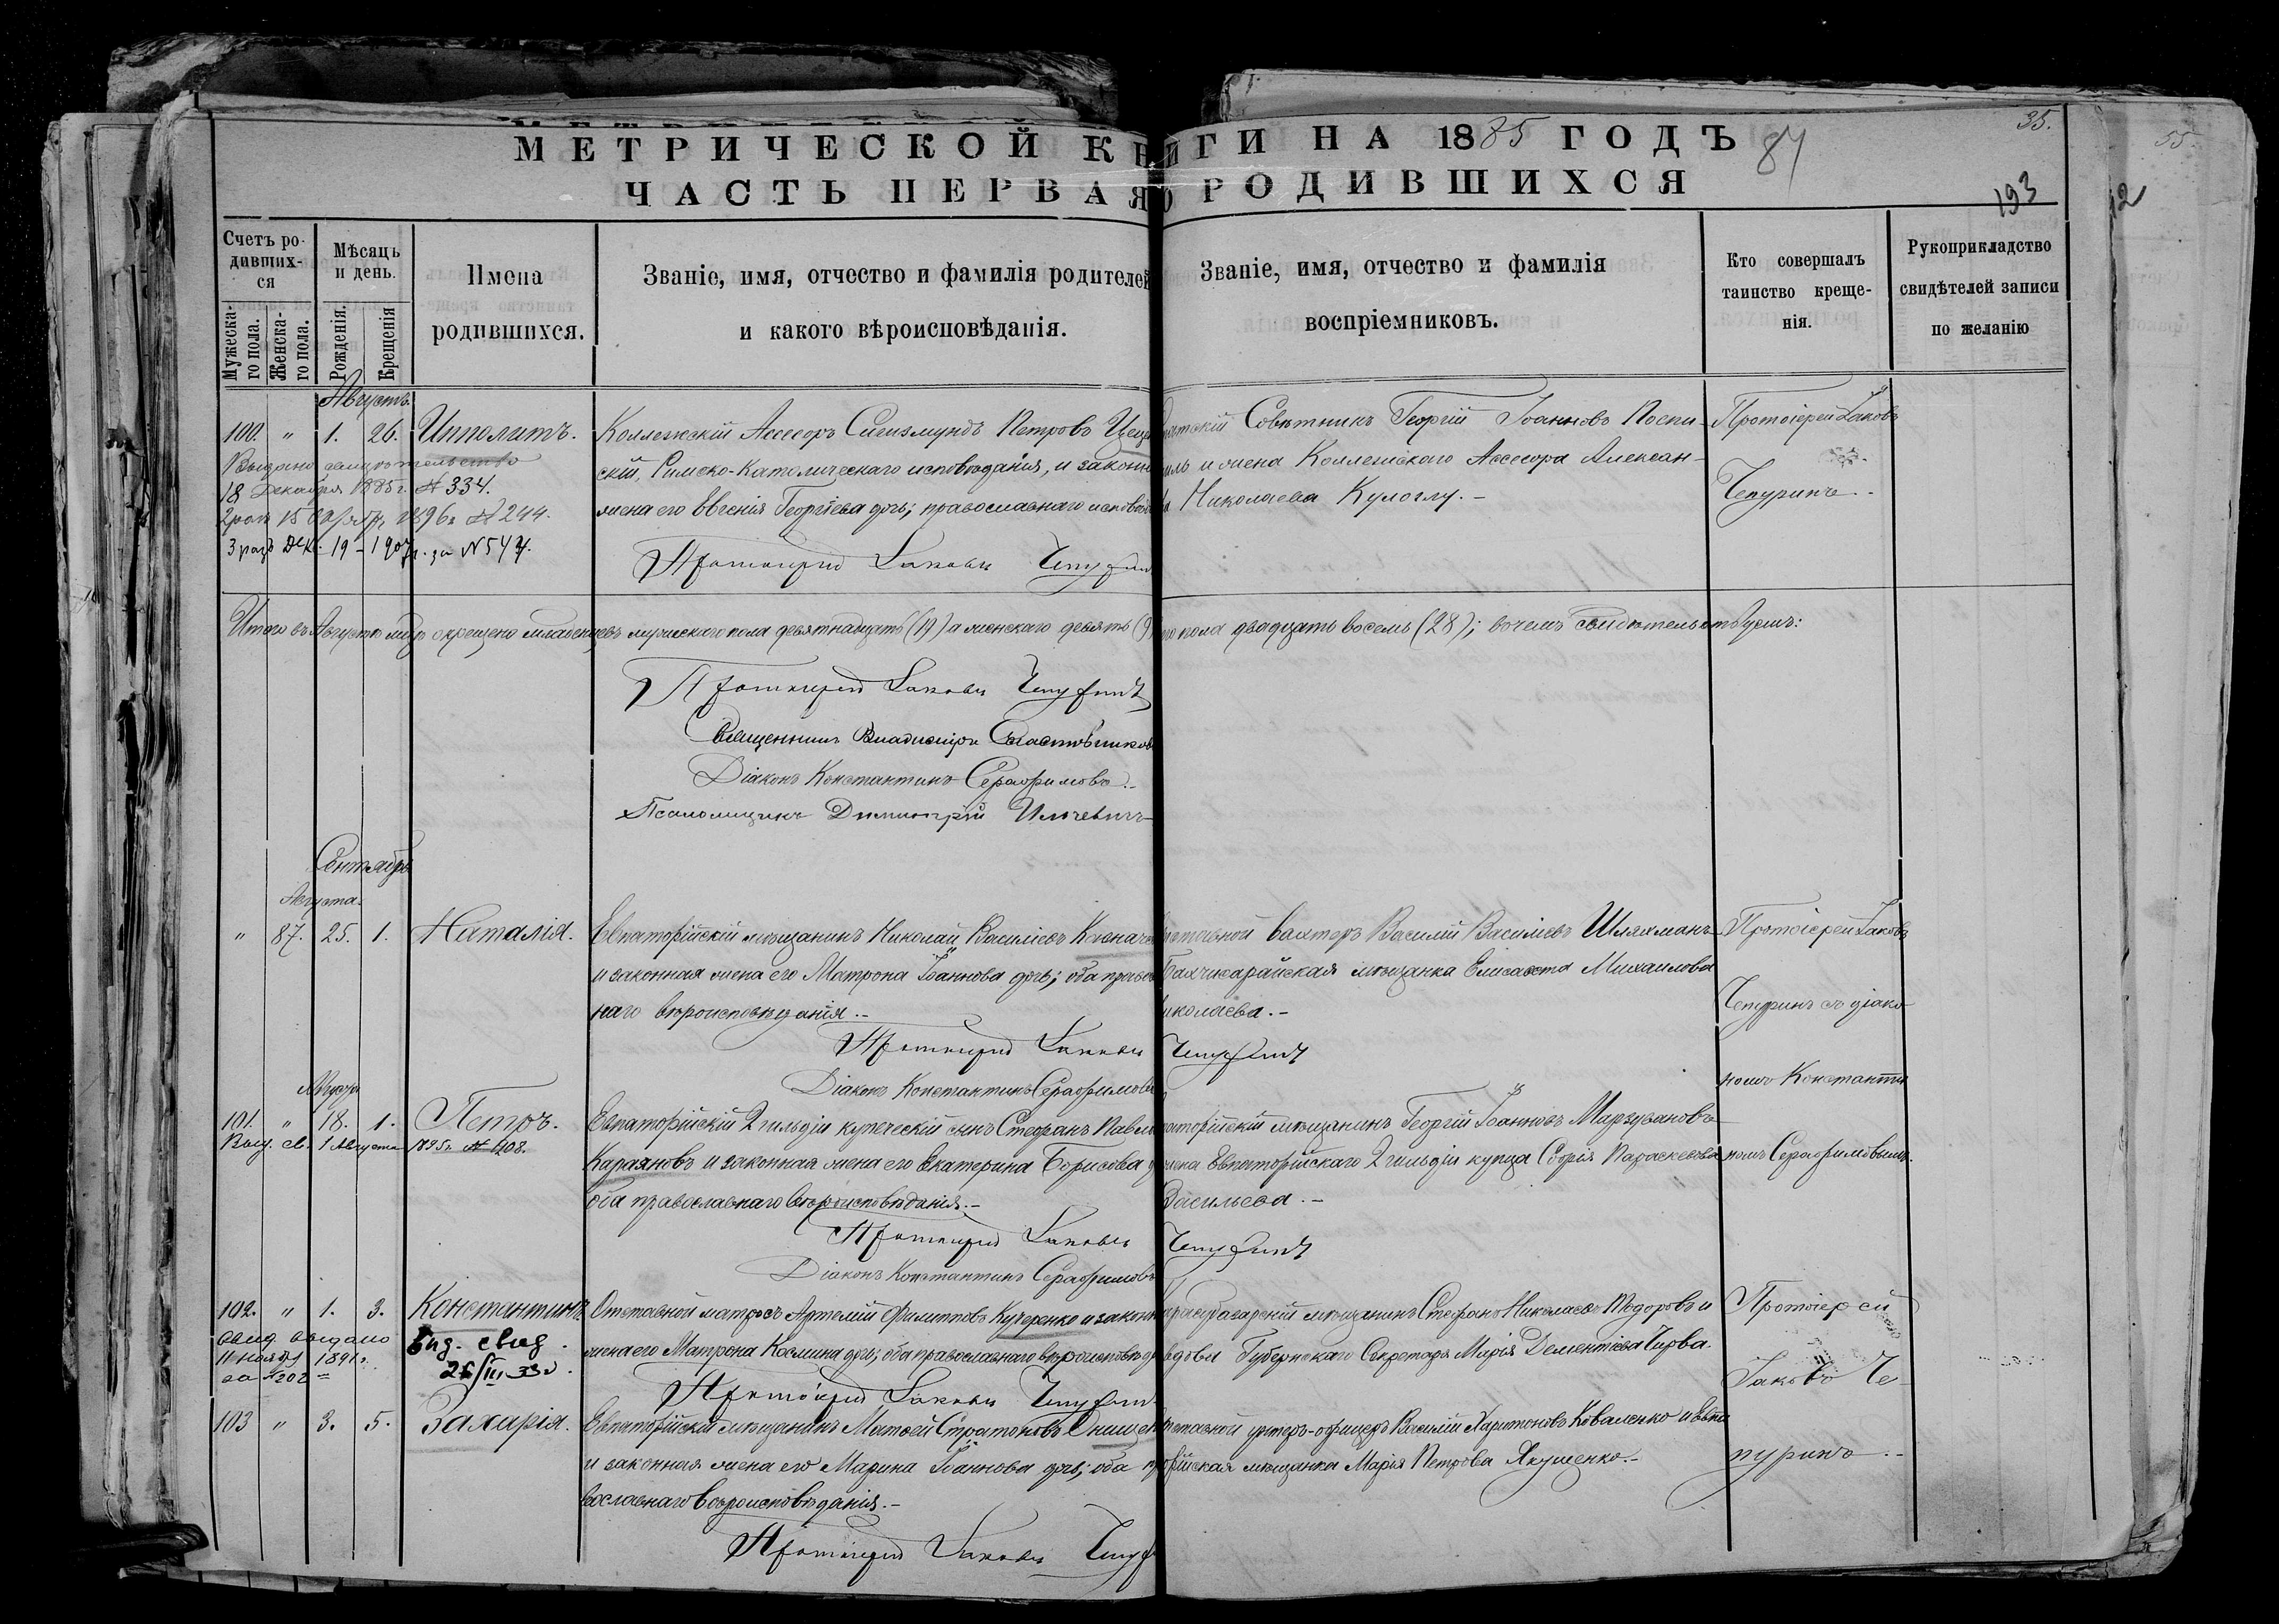 МЕТРИЧЕСКОЙ КНИГИ НА 1885 ГОДЪ
ЧАСТЬ ПЕРВАЯ О РОДИВШИХСЯ
84
35.
193
12
55.
Счетъ родившихся
Мужескаго пола.
Женскаго пола.
Мѣсяцъ и день.
Рожденія.
Крещенія
Имена родившихся.
Званіе, имя, отчество и фамилія родителей
и какого вѣроисповѣданія.
Званіе, имя, отчество и фамилія
воспріемниковъ.
Кто совершалъ
таинство креще-
нія.
Рукоприкладство
свидѣтелей записи
по желанію
Августъ.
100. " 1. 26. Ипполитъ.
Выдано свидѣтельство
18 Декабря 1885 г. № 334.
2 разъ 1896 г. № 244.
3 разъ Дек. 19 - 1907 г. за № 547.
Коллежскій Ассесоръ Сигизмундъ Петровъ
скій, Римско-Католическаго исповѣданія, и законн
жена его Евгенія Георгіева дочь; православнаго исповѣд
Протоіерей Іаковъ Чепурин
Совѣтникъ Георгій Іоанновъ Поспи-
ль и жена Коллежскаго Ассесора Алексан-
Николаева Кулоглу.-
Протоіерей Іаковъ
Чепуринъ.-
Итого въ Августѣ мцѣ окрещено младенцевъ мужескаго пола девятнадцать (19) а женскаго девять (9)
го пола двадцать восемь (28); въ чемъ свидѣтельствуемъ:
Протоіерей Іаковъ Чепуринъ
Священникъ Владиміръ Счастливиков
Діаконъ Константинъ Серафимовъ.-
Псаломщикъ Димитрій Ильчевичъ
Сентябрь
Августа
" 87. 25. 1. Наталія.
Евпаторійскій мѣщанинъ Николай Васильевъ Казнач
и законная жена его Матрона Іоаннова дочь; оба правос
наго вѣроисповѣданія.-
Протоіерей Іаковъ Чепуринъ
Діаконъ Константинъ Серафимовъ
ставной вахтеръ Василій Васильевъ Шляхманъ
Бахчисарайская мѣщанка Елисавета Михаилова
иколаева.-
Протоіерей Іаковъ
Чепуринъ съ діако
номъ Константи
номъ Серафимовымъ.
Августа
101. " 18. 1. Петръ.
Выд. св. 1 Августа 1895 г. № 408.
Евпаторійскій 2 гильдіи купеческій сынъ Стефанъ Павл
Караяновъ и законная жена его Екатерина Борисова д
оба православнаго вѣроисповѣданія.-
Протоіерей Іаковъ Чепуринъ
Діаконъ Константинъ Серафимовъ
аторійскій мѣщанинъ Георгій Іоанновъ Марзувановъ
жена Евпаторійскаго 2 гильдіи купца Софія Параскевова
Васильева.-
102. " 1. 3. Константинъ
Свид. выдано
11 ноября 1891 г.
за № 202
Выд. свид.
26/III 33
Отставной матросъ Артемій Филипповъ Кучеренко и законн
жена его Матрона Косьмина дочь; оба православнаго вѣроисповѣд
Протоіерей Іаковъ Чепурин
Карасубазарскій мѣщанинъ Стефанъ Николаевъ Тодоровъ и
вдова Губернскаго Секретаря Марія Дементіева Чирва.
Протоіерей
Іаковъ Че-
пуринъ.-
103 " 3. 5. Захарія.
Евпаторійскій мѣщанинъ Матѳей Стратоновъ Онищен
и законная жена его Марина Іоаннова дочь; оба пр
вославнаго вѣроисповѣданія.-
Протоіерей Іаковъ Чепур
тставной унтеръ-офицеръ Василій Харитоновъ Коваленко и Евпа
рійская мѣщанка Марія Петрова Якущенко.-